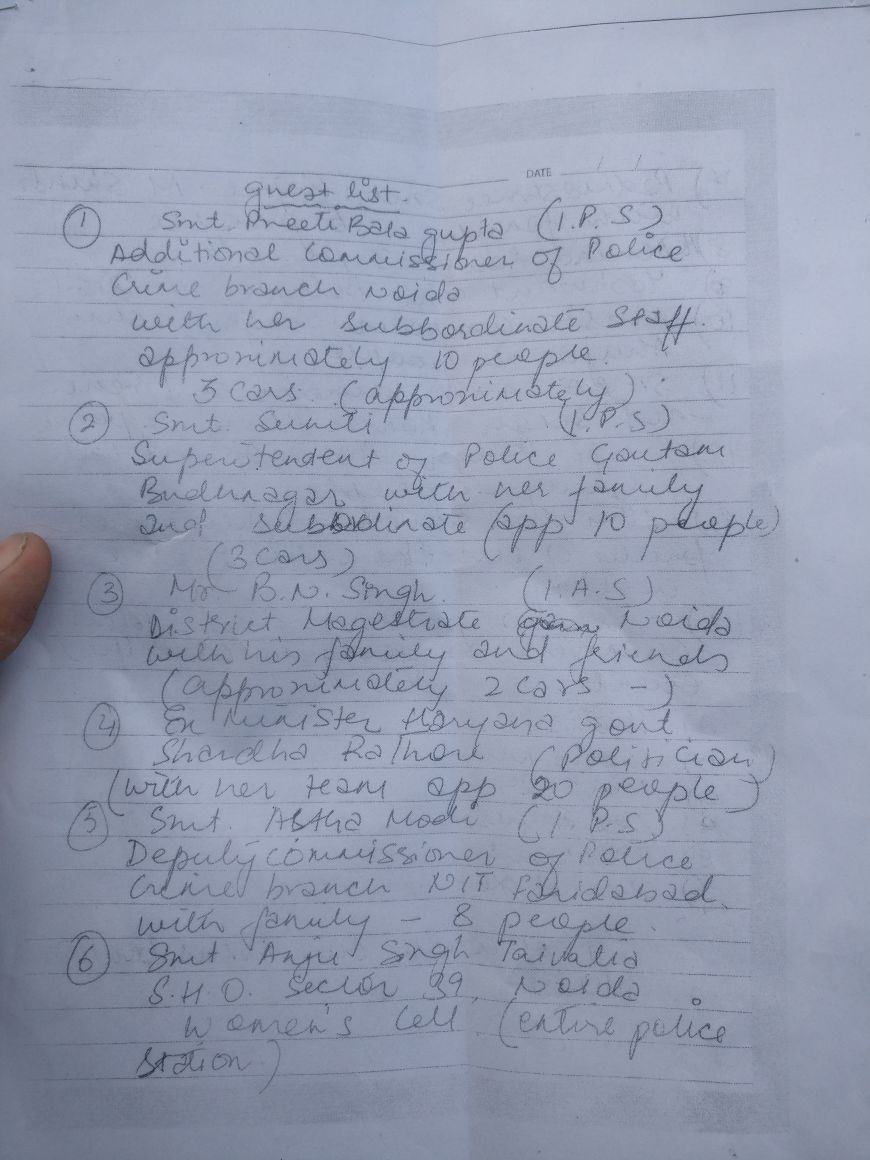 DATE / /
guest list.
① Smt. Preeti Bala gupta (I.P.S)
Additional Commissioner of Police
Crime branch Noida
with her subbordinate staff.
approximately 10 people.
3 cars (approximately)
② Smt. Suniti (I.P.S)
Superitendent of Police Gautam
Budhnagar with her family
and subbordinate (app 10 people)
(3 cars)
③ Mr B.N. Singh. (I.A.S)
District Magestrate Noida
with his family and friends
(approximately 2 cars -)
④ Ex Minister Haryana govt
Shardha Rathore (Politician)
(with her team app 20 people)
⑤ Smt. Astha Modi (I.P.S)
Deputy commissioner of Police
Crime branch NIT Faridabad.
with family - 8 people.
⑥ Smt. Anju Singh
S.H.O. Sector 39, Noida
Women's Cell (entire police
station)